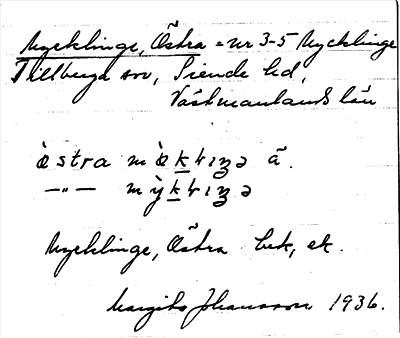 Mycklinge, Östra = nr 3-5 Mycklinge
Tillberga sn, Siende hd,
Västmanlands län
östra m ö k l ı ŋ ə ä.
—"— m y k l ı ŋ ə
Mycklinge, Östra bek, ek.
Margita Johansson 1936.